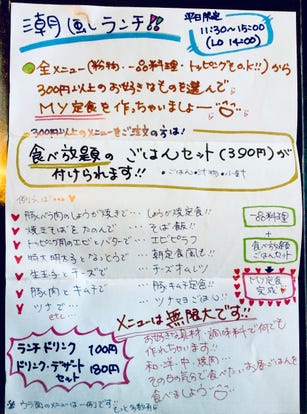 潮風ランチ!!
平日限定
11:30~15:00
(LO 14:00)
全メニュー(粉物・一品料理・トッピングもO.K!!)から
300円以上のお好きなものを選んで
MY定食を作っちゃいましょー
300円以上のメニューをご注文の方は!
食べ放題のごはんセット(390円)が
付けられます!!
・ごはん・汁物・小鉢
例えば…
豚バラ肉のしょうが焼きで… しょうが焼定食!!
焼きそばをたのんで … そば飯!!
トッピング用のエビとバターで… エビピラフ
特大明太子となっとうで… 朝定食風も!!
生玉子とチーズで … チーズオムレツ
豚肉とキムチで … 豚キムチ定食!!
ツナで… … ツナマヨごはん!!
etc…
一品料理
+
食べ放題ごはんセット
MY定食
完成
メニューは無限大です!!
お好きな具材・調味料で何でも
作れちゃいます!!
和・洋・中・焼肉…
その日の気分で食べたいお昼ごはんを
食べましょう
ランチドリンク 100円
ドリンク・デザート
セット 180円
※ウラ面のメニューは一例です!!
もっと多数有り